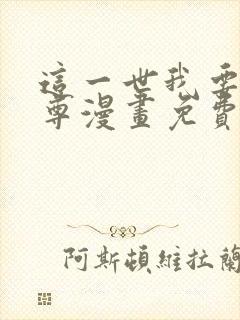 這一世我要
尊漫畫免費
阿斯頓維拉蘭